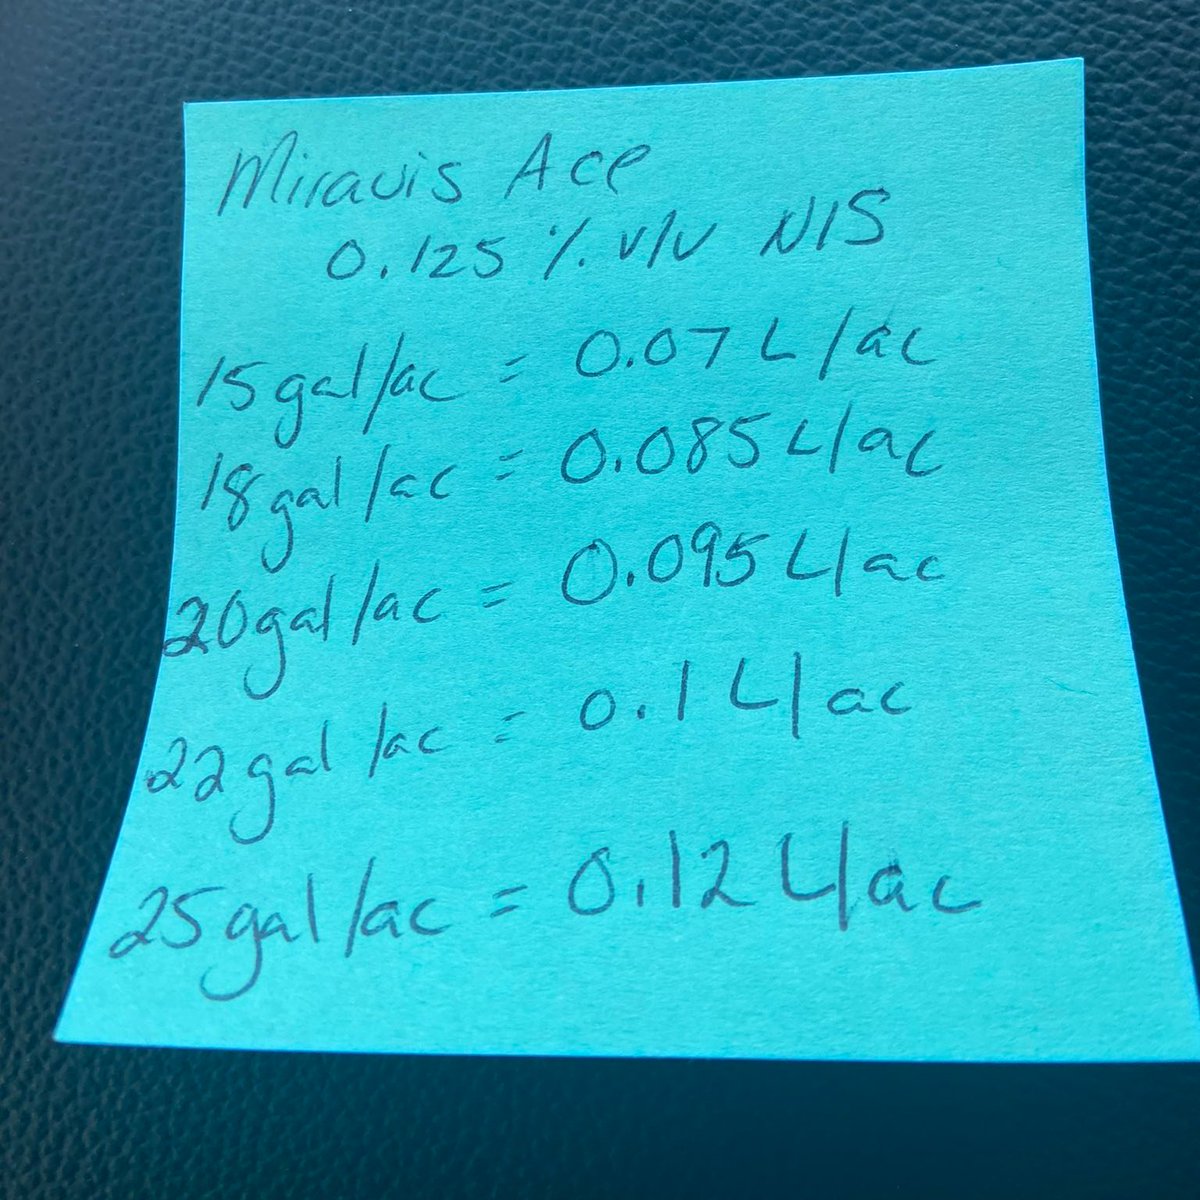 Miravis Ace
0.125 % v/v NIS
15gal/ac = 0.07 L/ac
18gal/ac = 0.085 L/ac
20gal/ac = 0.095 L/ac
22gal/ac = 0.1 L/ac
25gal/ac = 0.12 L/ac